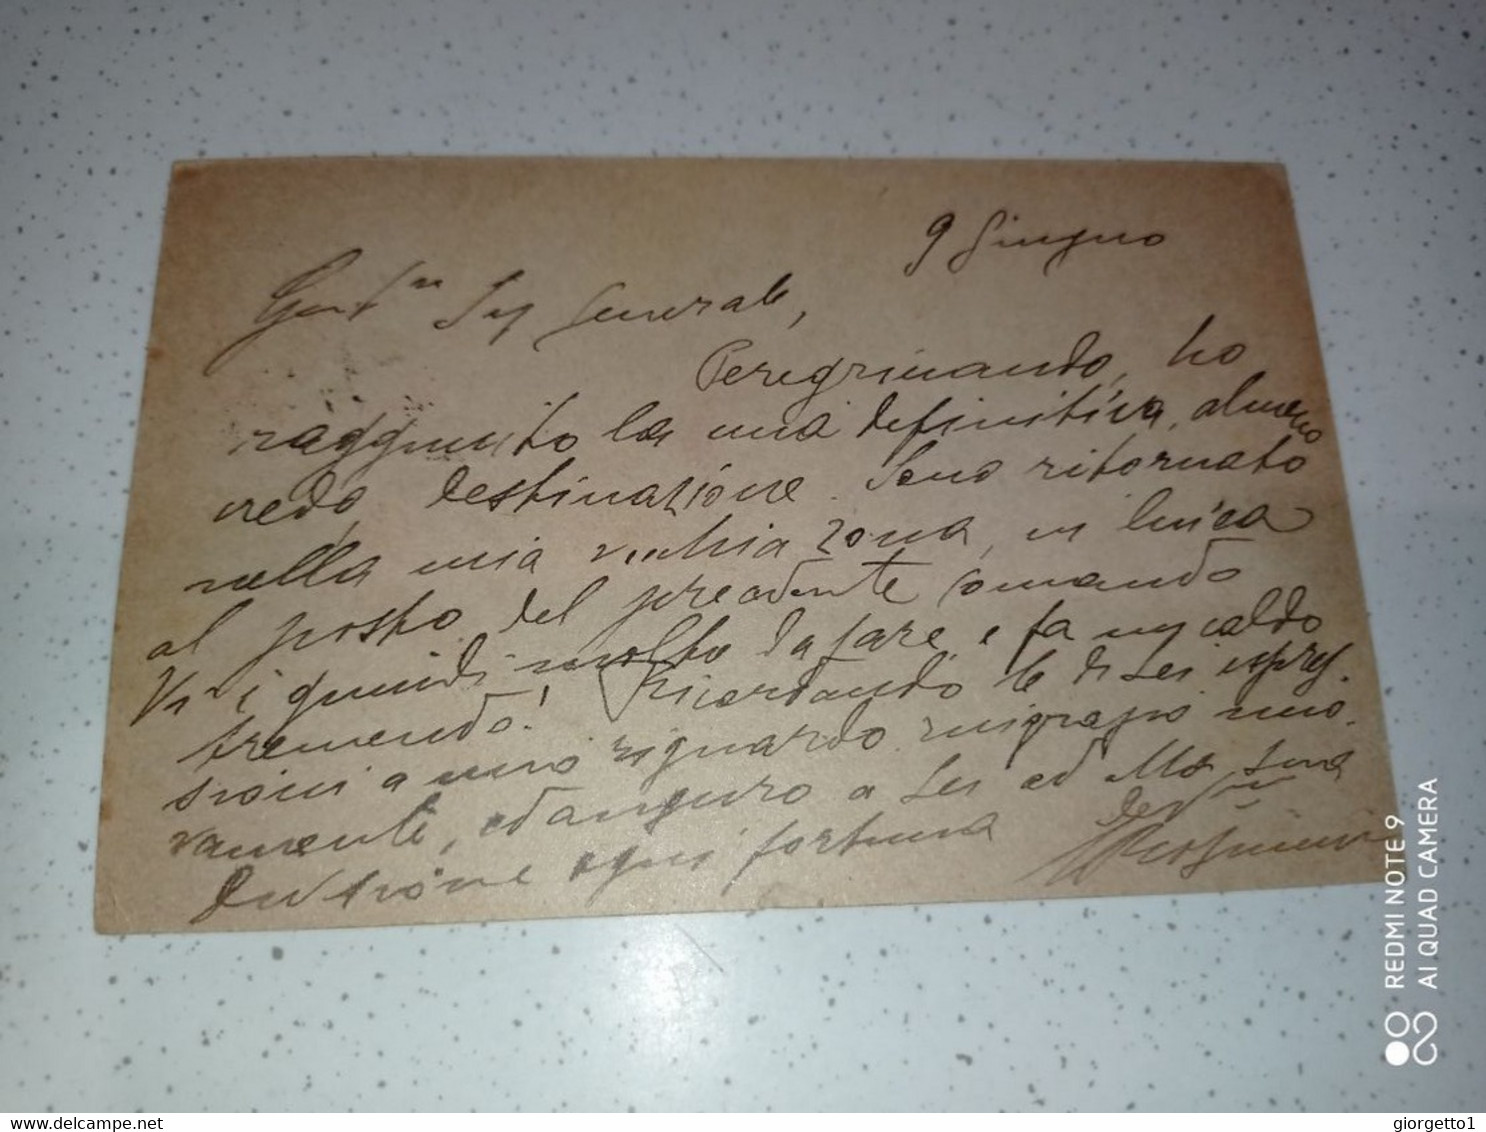 9 Giugno
Sig Generale,
Peregrinando, ho
raggiunto la mia definitiva, almeno
credo, destinazione. Sono ritornato
nella mia vecchia zona, in linea
al posto del precedente comando
Vi è quindi molto da fare e fa un caldo
tremendo! Ricordando le di Lei espres.
sioni a mio riguardo ringrazio nuo.
vamente, ed auguro a Lei ed alla Sua
ogni fortuna
REDMI NOTE 9
AI QUAD CAMERA
giorgetto1